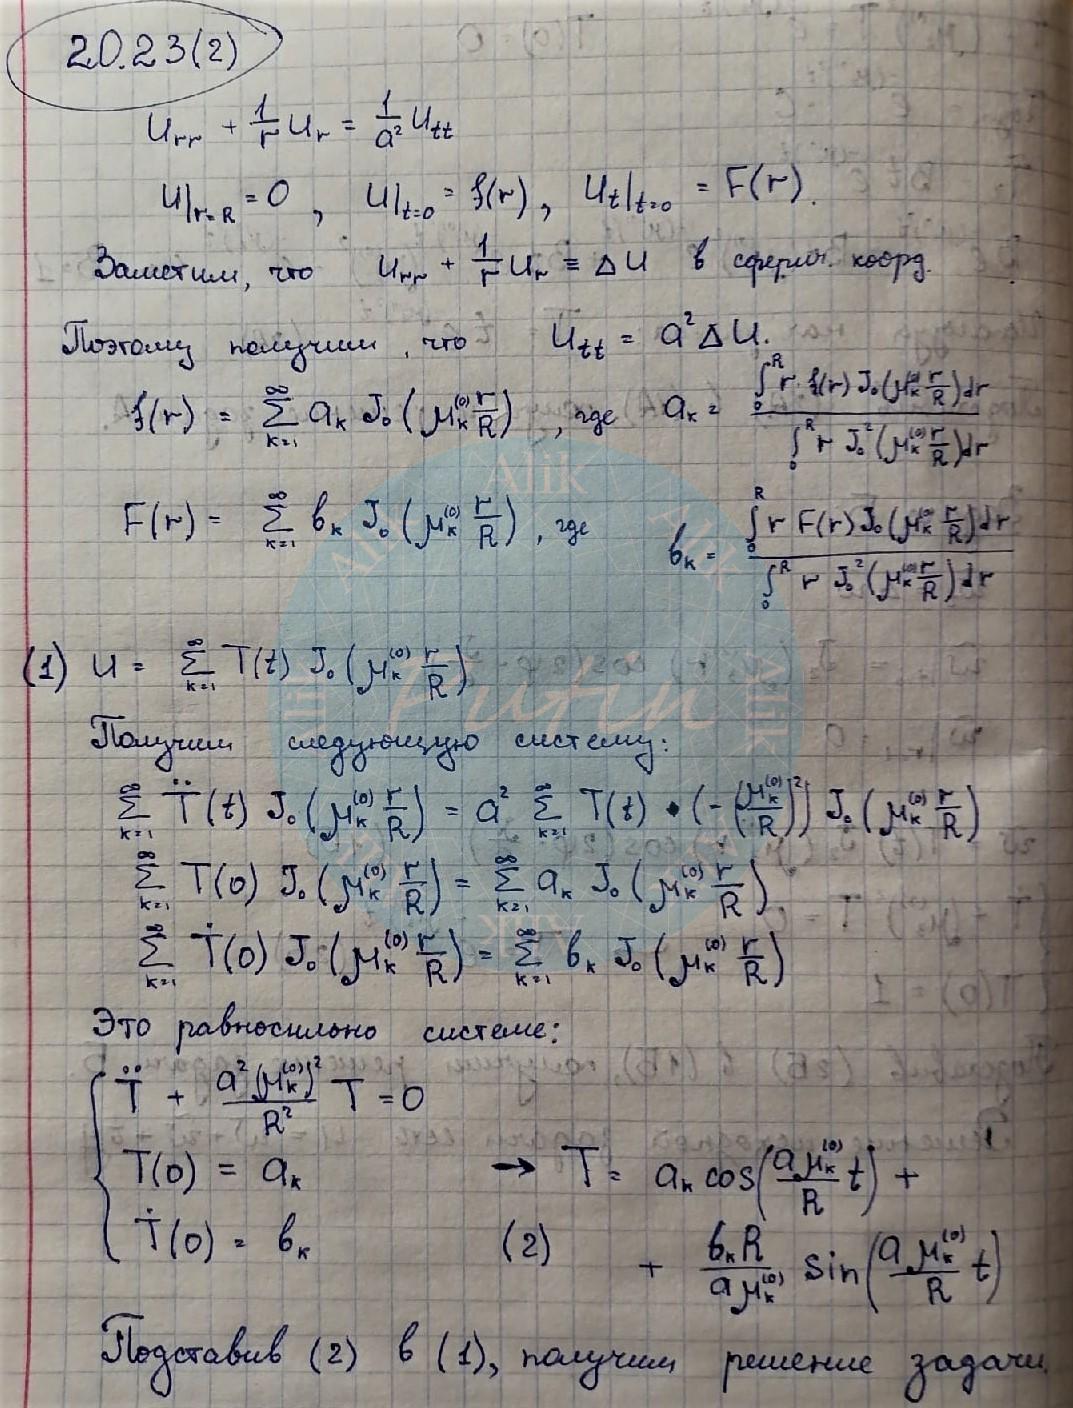 20.23(2)
U_rr + 1/r U_r = 1/a² U_tt
U|_r=R = 0 , U|_t=0 = f(r), U_t|_t=0 = F(r).
Заметим, что U_rr + 1/r U_r ≡ ΔU в сферич. коорд.
Поэтому получим, что U_tt = a² ΔU.
f(r) = ∑_{k=1}^∞ a_k J₀(μ_k^(0) r/R), где a_k = ∫_0^R r f(r) J₀(μ_k^(0) r/R)dr / ∫_0^R r J₀²(μ_k^(0) r/R)dr
F(r) = ∑_{k=1}^∞ b_k J₀(μ_k^(0) r/R), где b_k = ∫_0^R r F(r) J₀(μ_k^(0) r/R)dr / ∫_0^R r J₀²(μ_k^(0) r/R)dr
(1) U = ∑_{k=1}^∞ T(t) J₀(μ_k^(0) r/R)
Получим следующую систему:
∑_{k=1}^∞ T̈(t) J₀(μ_k^(0) r/R) = a² ∑_{k=1}^∞ T(t) • (-(μ_k^(0)/R)²) J₀(μ_k^(0) r/R)
∑_{k=1}^∞ T(0) J₀(μ_k^(0) r/R) = ∑_{k=1}^∞ a_k J₀(μ_k^(0) r/R)
∑_{k=1}^∞ Ṫ(0) J₀(μ_k^(0) r/R) = ∑_{k=1}^∞ b_k J₀(μ_k^(0) r/R)
Это равносильно системе:
T̈ + a²(μ_k^(0))²/R² T = 0
T(0) = a_k → T = a_k cos(aμ_k^(0)/R t) +
Ṫ(0) = b_k (2) + b_k R/aμ_k^(0) sin(aμ_k^(0)/R t)
Подставив (2) в (1), получим решение задачи.
Alik
Alik
Alik
Alik
Alik
Putin
Alik